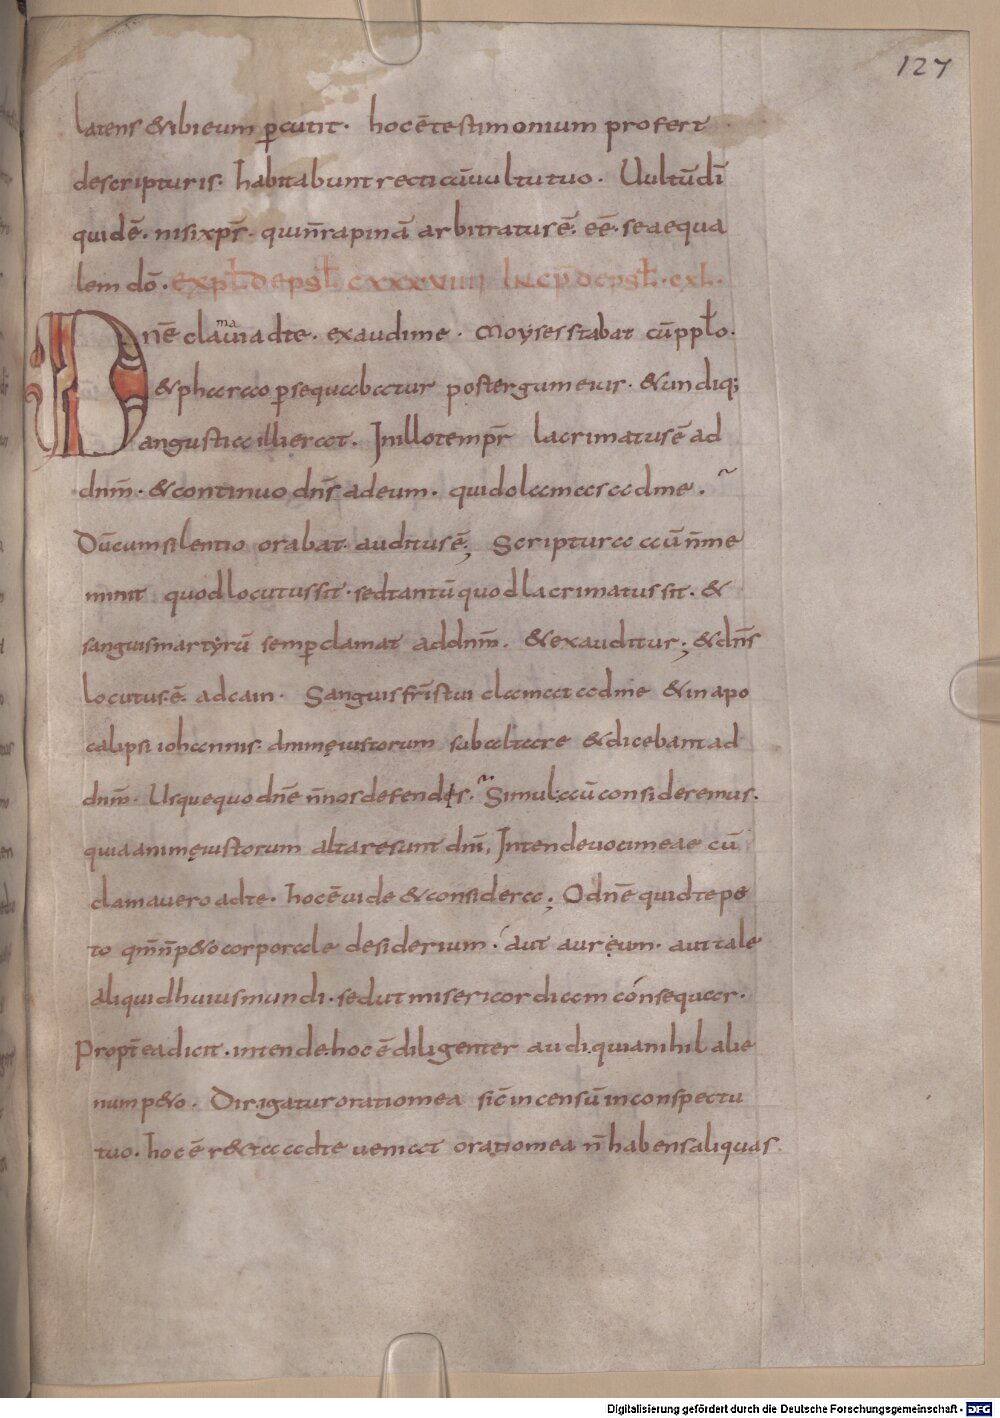 127
latens &ibi eum ꝑcutit· hoc ē testimonium profert
descripturis· habitabunt recti cū uultu tuo· Uultū dī
quid ē· nisi xpī· qui n̄ rapinā arbitratus ē· eē se aequa
lem dō· EXPƚ DE PSƚ CXXXVIIII INCP̄ DE PSƚ· CXL·
Dnē clamaui ad te· exaudi me· Moyses stabat cū ppƚo·
& pharao ꝑsequabatur post tergum eius· & undiq;
angustia illi erat· In illo tempr̄ lacrimatus ē ad
dnm̄· & continuo dn̄s ad eum· quid olamas ad me·
Dū cum silentio orabat· auditus ē; Scriptura aū n̄ me
minit quod locutus sit· sed tantū quod lacrimatus sit· &
sanguis martyrū semꝑ clamat ad dnm̄· & exauditur; & dn̄s
locutus ē· ad cain· Sanguis fr̄is tui clamat ad me & in apo
calipsi iohannis· animę iustorum sub altare & dicebant ad
dnm̄· Usquequo dnē n̄ nos defendis· Simul aū consideremus·
quia animę iustorum altare sunt dnī, Intende uoci meae cū
clamauero ad te· hoc ē uide & considera; O dnē quid te pe
to qm̄ n̄ p&o corporale desiderium· aut aureum· aut tale
aliquid huius mundi· sed ut misericordiam consequar·
Propt̄ea dicit· intende· hoc ē diligenter audi· quia nihil alie
num p&o· Dirigatur oratio mea sic̄ incensū in conspectu
tuo· hoc ē r&ta ad te ueniat oratio mea n̄ habens aliquas
Digitalisierung gefördert durch die Deutsche Forschungsgemeinschaft · DFG